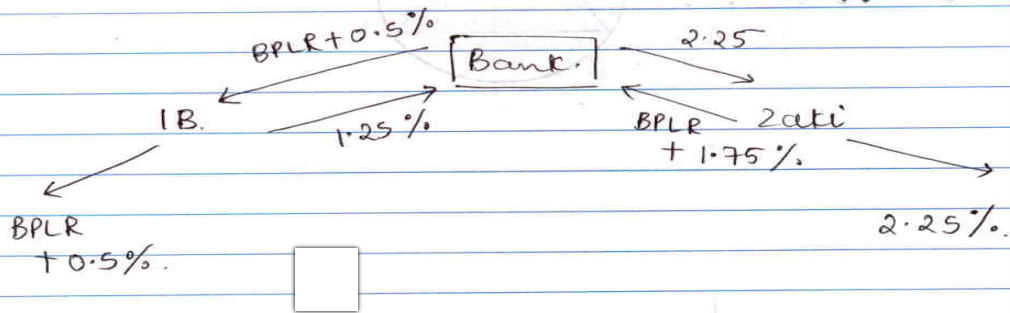 BPLR + 0.5%
Bank.
2.25
IB.
1.25%
BPLR
+ 1.75%
Zaki
BPLR
+ 0.5%.
2.25%.